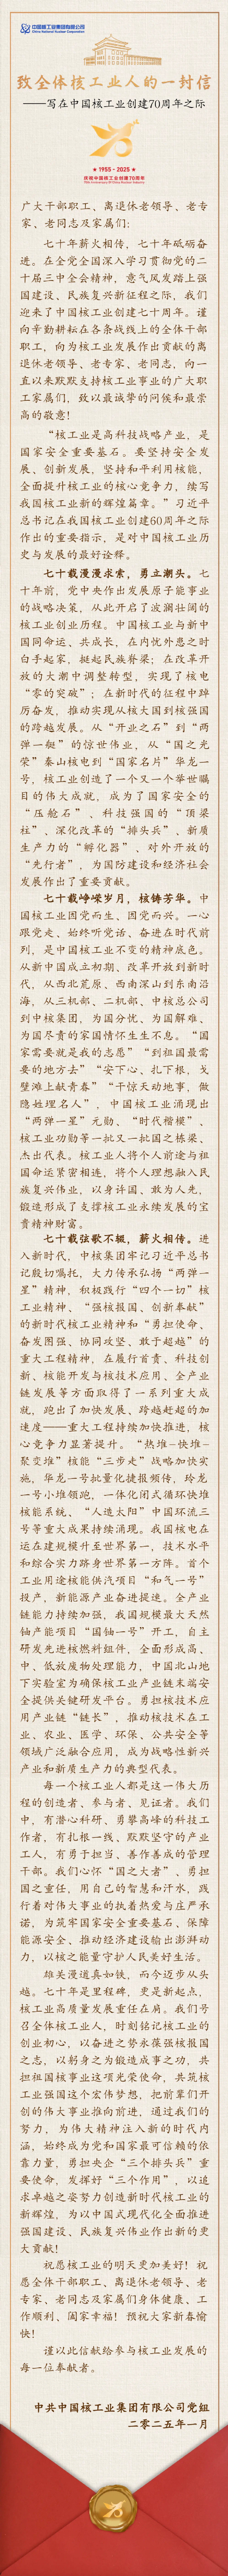 中国核工业集团有限公司
China National Nuclear Corporation
致全体核工业人的一封信
——写在中国核工业创建70周年之际
★1955-2025★
庆祝中国核工业创建70周年
70th Anniversary of China Nuclear Industry
广大干部职工、离退休老领导、老专
家、老同志及家属们:
七十年薪火相传,七十年砥砺奋
进。在全党全国深入学习贯彻党的二
十届三中全会精神,意气风发踏上强
国建设、民族复兴新征程之际,我们
迎来了中国核工业创建七十周年。谨
向辛勤耕耘在各条战线上的全体干部
职工,向为核工业发展作出贡献的离
退休老领导、老专家、老同志,向一
直以来默默支持核工业事业的广大职
工家属们,致以最诚挚的问候和最崇
高的敬意!
“核工业是高科技战略产业,是
国家安全重要基石。要坚持安全发
展、创新发展,坚持和平利用核能,
全面提升核工业的核心竞争力,续写
我国核工业新的辉煌篇章。”习近平
总书记在我国核工业创建60周年之际
作出的重要指示,是对中国核工业历
史与发展的最好诠释。
七十载漫漫求索,勇立潮头。七
十年前,党中央作出发展原子能事业
的战略决策,从此开启了波澜壮阔的
核工业创业历程。中国核工业与新中
国同命运、共成长,在内忧外患之时
白手起家,挺起民族脊梁;在改革开
放的大潮中调整转型,实现了核电
“零的突破”;在新时代的征程中踔
厉奋发,推动实现从核大国到核强国
的跨越发展。从“开业之石”到“两
弹一艇”的惊世伟业,从“国之光
荣”秦山核电到“国家名片”华龙一
号,核工业创造了一个又一个举世瞩
目的伟大成就,成为了国家安全的
“压舱石”、科技强国的“顶梁
柱”、深化改革的“排头兵”、新质
生产力的“孵化器”、对外开放的
“先行者”,为国防建设和经济社会
发展作出了重要贡献。
七十载峥嵘岁月,核铸芳华。中
国核工业因党而生、因党而兴。一心
跟党走、始终听党话、奋进在时代前
列,是中国核工业不变的精神底色。
从新中国成立初期、改革开放到新时
代,从西北荒原、西南深山到东南沿
海,从三机部、二机部、中核总公司
到中核集团,为国分忧、为国解难、
为国尽责的家国情怀生生不息。“国
家需要就是我的志愿”“到祖国最需
要的地方去”“安下心、扎下根,戈
壁滩上献青春”“干惊天动地事,做
隐姓埋名人”,中国核工业涌现出
“两弹一星”元勋、“时代楷模”、
核工业功勋等一批又一批国之栋梁、
杰出代表。核工业人将个人前途与祖
国命运紧密相连,将个人理想融入民
族复兴伟业,以身许国、敢为人先,
锻造形成了支撑核工业永续发展的宝
贵精神财富。
七十载弦歌不辍,薪火相传。进
入新时代,中核集团牢记习近平总书
记殷切嘱托,大力传承弘扬“两弹一
星”精神,积极践行“四个一切”核
工业精神、“强核报国、创新奉献”
的新时代核工业精神和“勇担使命、
奋发图强、协同攻坚、敢于超越”的
重大工程精神,在履行首责、科技创
新、核能开发与核技术应用、全产业
链发展等方面取得了一系列重大成
就,跑出了加快发展、跨越赶超的加
速度——重大工程持续加快推进,核
心竞争力显著提升。“热堆-快堆-
聚变堆”核能“三步走”战略加快实
施,华龙一号批量化捷报频传,玲龙
一号小堆领跑,一体化闭式循环快堆
核能系统、“人造太阳”中国环流三
号等重大成果持续涌现。我国核电在
运在建规模升至世界第一,技术水平
和综合实力跻身世界第一方阵。首个
工业用途核能供汽项目“和气一号”
投产,新能源产业奋进提速。全产业
链能力持续加强,我国规模最大天然
铀产能项目“国铀一号”开工,自主
研发先进核燃料组件,全面形成高、
中、低放废物处理能力,中国北山地
下实验室为确保核工业产业链末端安
全提供关键研发平台。勇担核技术应
用产业链“链长”,推动核技术在工
业、农业、医学、环保、公共安全等
领域广泛融合应用,成为战略性新兴
产业和新质生产力的典型代表。
每一个核工业人都是这一伟大历
程的创造者、参与者、见证者。我们
中,有潜心科研、勇攀高峰的科技工
作者,有扎根一线、默默坚守的产业
工人,有勇于担当、善作善成的管理
干部。我们心怀“国之大者”、勇担
国之重任,用自己的智慧和汗水,践
行着对伟大事业的执着热爱与庄严承
诺,为筑牢国家安全重要基石、保障
能源安全、推动经济建设输出澎湃动
力,以核之能量守护人民美好生活。
雄关漫道真如铁,而今迈步从头
越。七十年是里程碑,更是新起点,
核工业高质量发展重任在肩。我们号
召全体核工业人,时刻铭记核工业的
创业初心,以奋进之势永葆强核报国
之志,以躬身之为锻造成事之功,共
担祖国核事业这项光荣使命,共筑核
工业强国这个宏伟梦想,把前辈们开
创的伟大事业推向前进,通过我们的
努力,为伟大精神注入新的时代内
涵,始终成为党和国家最可信赖的依
靠力量,勇担央企“三个排头兵”重
要使命,发挥好“三个作用”,以追
求卓越之姿努力创造新时代核工业的
新辉煌,为以中国式现代化全面推进
强国建设、民族复兴伟业作出新的更
大贡献!
祝愿核工业的明天更加美好!祝
愿全体干部职工、离退休老领导、老
专家、老同志及家属们身体健康、工
作顺利、阖家幸福!预祝大家新春愉
快!
谨以此信献给参与核工业发展的
每一位奉献者。
中共中国核工业集团有限公司党组
二零二五年一月